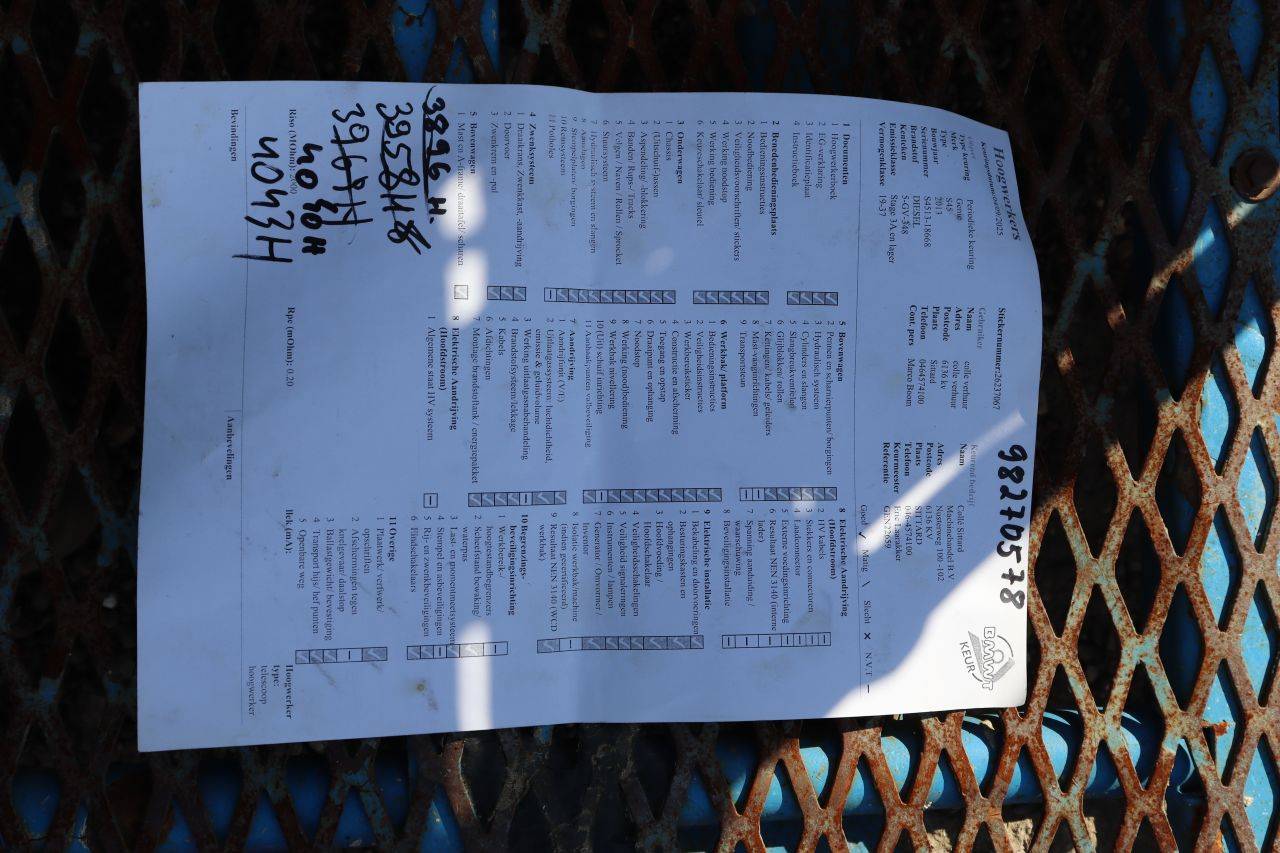 98270578
BMWT
KEUR
Hoogwerkers
Stickernummer:26237067
Type keuring Periodieke keuring
Merk Genie
Type S45
Bouwjaar 2013
Serienummer S4513-18668
Brandstof DIESEL
Kenteken 5-GV-348
Emissieklasse Stage 3A en lager
Vermogenklasse 19-37
Gebruiker
Naam colle verhuur
Adres colle verhuur
Postcode 6136 kv
Plaats Sittard
Telefoon 0464574100
Cont. pers Marco Boom
Keurend bedrijf
Naam Collé Sittard
Machinehandel B.V.
Adres Nusterweg 100 -102
Postcode 6136 KV
Plaats SITTARD
Telefoon 046-4574100
Keurmeester
Referentie GEN22659
Goed ✓ Matig \ Slecht × N.V.T —
1 Documenten
1 Hoogwerkerboek
2 EG-verklaring
3 Identificatieplaat
4 Instructieboek
2 Benedenbedieningsplaats
1 Bedieningsinstructies
2 Noodbediening
3 Veiligheidsvoorschriften/ stickers
4 Werking noodstop
5 Werking bediening
6 Keuzeschakelaar/ sleutel
3 Onderwagen
1 Chassis
2 (Uitschuif-)assen
3 Aspendeling/ -blokkering
4 Banden/ Rups/ Trucks
5 Velgen / Naven / Rollen / Sprocket
6 Stuursysteem
7 Hydraulisch systeem en slangen
8 Aandrijving
9 Stempelplaten/ borgingen
10 Remsysteem
11 Potholes
4 Zwenksysteem
1 Draaikrans, Zwenkkast, -aandrijving
2 Doorvoer
3 Zwenkrem en -pal
5 Bovenwagen
1 Mast en A-frame/ draaitafel/ scharen
5 Bovenwagen
2 Pennen en scharnierpunten/ borgingen
3 Hydraulisch systeem
4 Cylinders en slangen
5 Slangbreukventielen
6 Glijblokken/ rollen
7 Kettingen/ kabels/ geleiders
8 Mast-vanginrichtingen
9 Transportsteun
6 Werkbak/ platform
1 Bedieningsinstructies
2 Veiligheidsinstructies
3 Werkbereiksticker
4 Constructie en afscherming
5 Toegang en opstap
6 Draaipunt en ophanging
7 Noodstop
8 Werking (nood)bediening
9 Werkbak nivellering
10 (Uit) schuif inrichting
11 Aanhaakpunten valbeveiliging
7 Aandrijving
1 Aandrijflijnt (V/E)
2 Uitlaatgassysteem: luchtdichtheid,
emissie & geluidvolume
3 Werking uitlaatgasnabehandeling
4 Brandstofsysteem/lekkage
5 Kabels
6 Afdichtingen
7 Montage brandstoftank / energiepakket
8 Elektrische Aandrijving
(Hoofdstroom)
1 Algemene staat HV systeem
8 Elektrische Aandrijving
(Hoofdstroom)
2 HV kabels
3 Stekkers en connectoren
4 Ladonmometer
5 Externe voedingsinrichting
6 Resultaat NEN 3140 (interne
lader)
7 Spanning aanduiding /
waarschuwing
8 Beveiligingsinstallatie
9 Elektrische installatie
1 Bekabeling en doorvoeringen
2 Besturingskasten en
ophangingen
3 Hoofdvoeding /
Hoofdschakelaar
4 Veiligheidsschakelingen
5 Veiligheid signaleringen
6 Instrumenten / lampen
7 Generator / Omvormer /
Inventor
8 Isolatie werkbak/machine
(indien gecertificeerd)
9 Resultaat NEN 3140 (WCD
werkbak)
10 Begrenzings-
beveiligingsinrichting
1 Werkbereik-/
hoogtestandbegrenzers
2 Scheefstand bewaking/
waterpas
3 Last- en momentmeetsysteem
4 Stempel en asbeveiligingen
5 Rij- en zwenkbeveiligingen
6 Eindschakelaars
11 Overige
1 Plaatwerk/ verfwerk/
opschriften
2 Afschermingen tegen
knelgevaar/ dodemanstop
3 Ballastgewicht/ bevestiging
4 Transport hijs/ hef punten
5 Openbare weg
3896 H.
3958H
3967H
4030H
4043H
Riso (MOhm): 500
Rpe (mOhm): 0.20
Ilek (mA):
Hoogwerker
type:
telescoop
hoogwerker
Bevindingen
Aanbevelingen